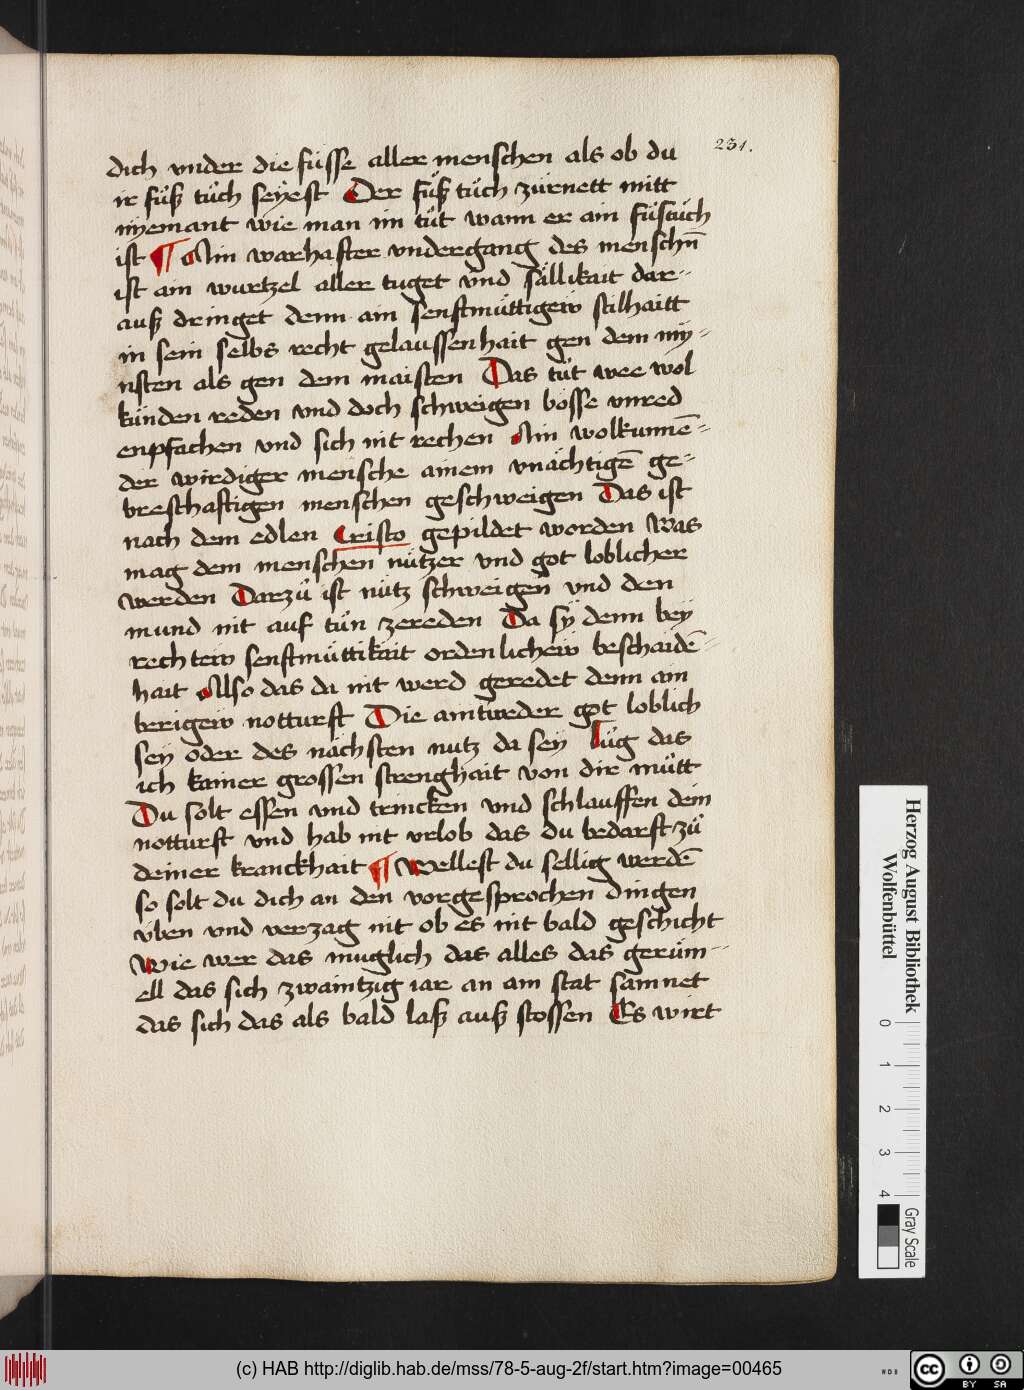 231.
dich vnder die füsse aller menschen als ob du
ir fuͦß tuͦch seyest Der fuͦß tuͦch zürnett mitt
nyemant wie man im tuͦt wann er ain fuͦstuch
ist ¶ Ain warhafter vndergang des menschn̄
ist am wurtzel aller tuget vnd sällikait dar-
auß dringet denn ain senftmüttigew stilhaitt
in sein selbs recht gelaussenhait gen dem my-
nsten als gen dem maisten Das tuͦt wee wol
künden reden vnd doch schweigen bösse vnred
enpfachen vnd sich nit rechen Ain wolkunnē-
der wirdiger mensche ainem vnächtigē ge-
breschaftigen menschen geschweigen Das ist
nach dem edlen Cristo gepildet worden Was
mag dem menschen nützer vnd got loblicher
werden Darzuͦ ist nütz schweigen vnd den
mund nit auf tuͦn zereden Da sÿ denn beÿ
rechtew senftmüttikait ordenlichew beschaidē-
hait Also das da nit werd geredet denn ain
berigew notturft Die aintweder got loblich
sey oder des nächsten nutz da sey Luͦg das
ich kainer grossen strenghait von dir muͦtt
Du solt essen vnd trincken vnd schlauffen dein
notturft vnd hab nit vrlob das du bedarft zuͦ
deiner kranckhait ¶ Wellest du sellig werdē
so solt du dich an den vorgesprochen dingen
vben vnd verzag nit ob es nit bald geschicht
Wie wer das muglich das alles das gerüm-
ell das sich zwaintzig iar an am stat samnet
das sich das als bald laß auß stossen Es wirt
Herzog August Bibliothek
Wolfenbüttel
0 1 2 3 4
Gray Scale
(c) HAB http://diglib.hab.de/mss/78-5-aug-2f/start.htm?image=00465
WDB
cc BY SA